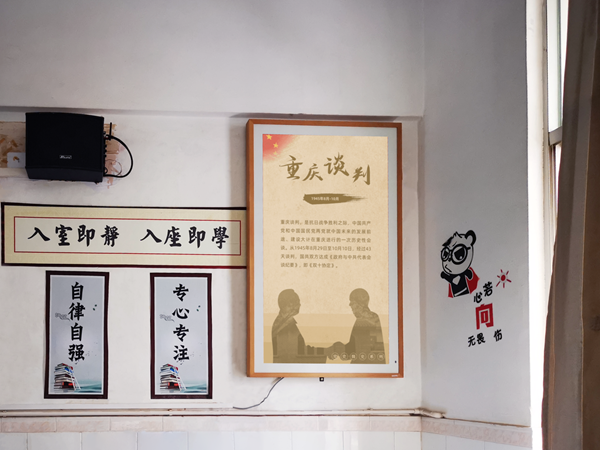 入室即靜 入座即學
自律自强
专心专注
重庆谈判
重庆谈判，是抗日战争胜利之际，中国共产
党和中国国民党两党就中国未来的发展前
途、建设大计在重庆进行的一次历史性会
谈。从1945年8月29日至10月10日，经过43
天谈判，国共双方达成《政府与中共代表会
谈纪要》，即《双十协定》。
心若
向
无畏 伤